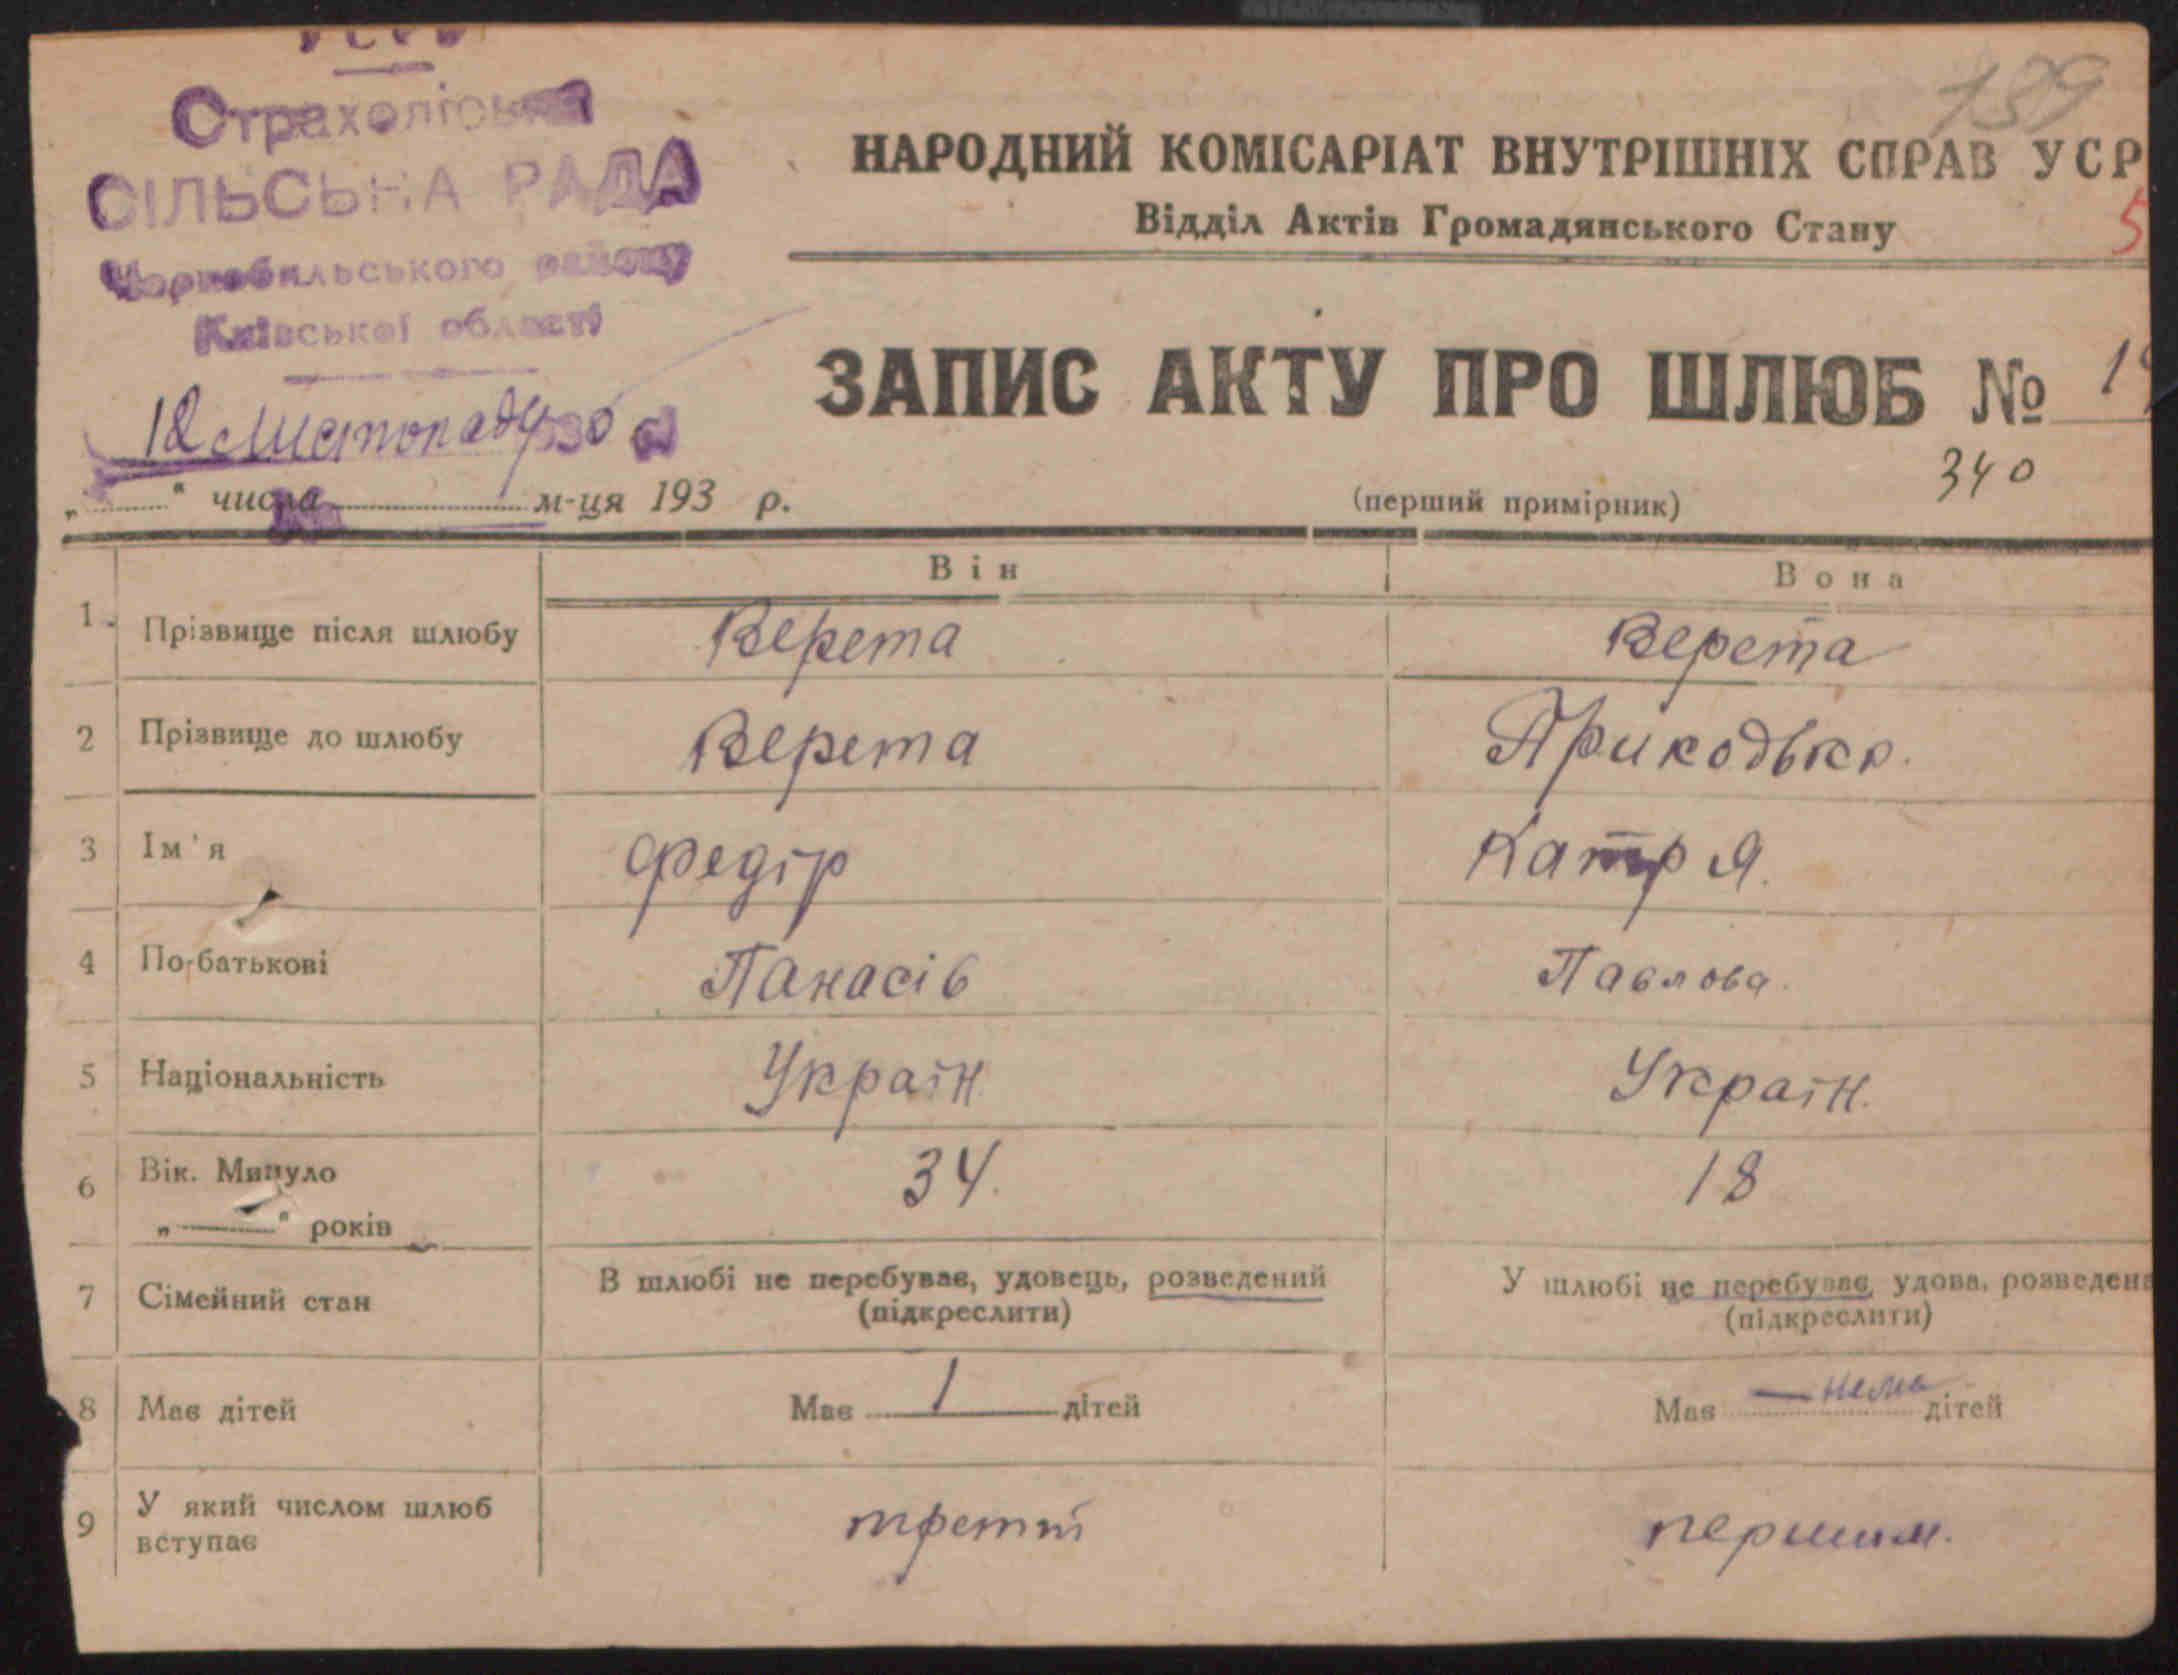 УСРР
Страхоліська
СІЛЬСЬКА РАДА
Чорнобильського району
Київської області
12 Листопаду 1930
„ “ числа м-ця 193 р.
139
НАРОДНИЙ КОМІСАРІАТ ВНУТРІШНІХ СПРАВ УСР
Відділ Актів Громадянського Стану
5
ЗАПИС АКТУ ПРО ШЛЮБ №
(перший примірник)
340
Він Вона
1. Прізвище після шлюбу Верета Верета
2 Прізвище до шлюбу Верета Прикодько.
3 Ім'я Федір Катря.
4 По-батькові Панасів Павлова.
5 Національність Україн. Україн.
6 Вік. Минуло 34. 18
„ “ років
7 Сімейний стан В шлюбі не перебуває, удовець, розведений У шлюбі не перебуває, удова, розведена
(підкреслити) (підкреслити)
8 Має дітей Має 1 дітей Має — нема дітей
9 У який числом шлюб третій першим.
вступає